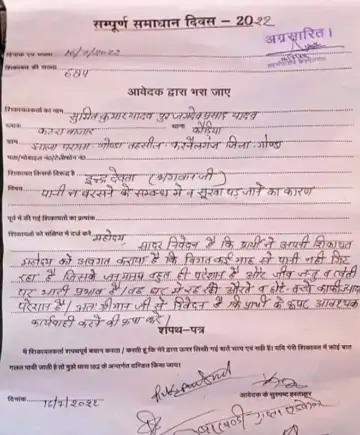 सम्पूर्ण समाधान दिवस – 2022
अग्रसारित।
दिनांक एवं समय 16/7/2022
शिकायत की संख्या 684
आवेदक द्वारा भरा जाए
शिकायतकर्ता का नाम सुमित कुमार यादव पुत्र यादव
ब्लाक कटरा बाजार थाना कौड़िया
ग्राम झाला परगना गोण्डा तहसील करनैलगंज जिला गोण्डा
पता/मोबाइल नं०/टेलीफोन नं०
शिकायत किसके विरूद्ध है इन्द्र देवता (भगवान जी)
विषय पानी न बरसने के सम्बन्ध में व सूखा पड़ जाने का कारण
पूर्व में की गई शिकायतों का क्रमांक
शिकायतों को संक्षिप्त में दर्ज करें महोदय
सादर निवेदन है कि प्रार्थी ने आपसी शिकायत
महोदय को अवगत कराया है कि विगत कई माह से पानी नहीं गिर
रहा है जिससे जनमानस बहुत ही परेशान है और जीव जन्तु व खेती
पर भारी प्रभाव है। घर में रह रही औरते व छोटे बच्चे काफी
परेशान है। अतः श्रीमान जी से निवेदन है कि प्रार्थी के आवश्यक
कार्यवाही करने की कृपा करें।
शपथ-पत्र
मैं शिकायतकर्ता शपथपूर्वक बयान करता / करती हूं कि मेरे द्वारा ऊपर लिखी गई बातें सत्य एवं सही है। यदि मेरी शिकायत में कोई बात
गलत पायी जाती है तो मुझे धारा 182 के अन्तर्गत दण्डित किया जाय।
आवेदक के सुस्पष्ट हस्ताक्षर
दिनांक 16/7/2022